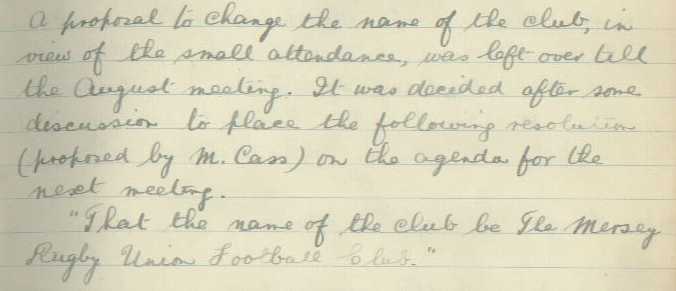 A proposal to change the name of the club, in
view of the small attendance, was left over till
the August meeting. It was decided after some
discussion to place the following resolution
(proposed by M. Cass) on the agenda for the
next meeting.
"That the name of the club be The Mersey
Rugby Union Football Club."